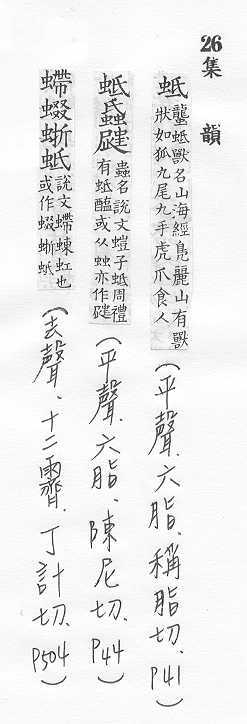 26集 韻
蚳
蠪蚳獸名山海經鳧麗山有獸
狀如狐九尾九手虎爪食人
(平聲、六脂、稱脂切、P41)
蚳
蟲名說文螘子蚳周禮
有蚳醢或从䖵亦作
(平聲、六脂、陳尼切、P44)
螮蝃蜥蚳
說文螮蝀虹也
或作蝃蜥蚳
(去聲、十二霽、丁計切、P504)